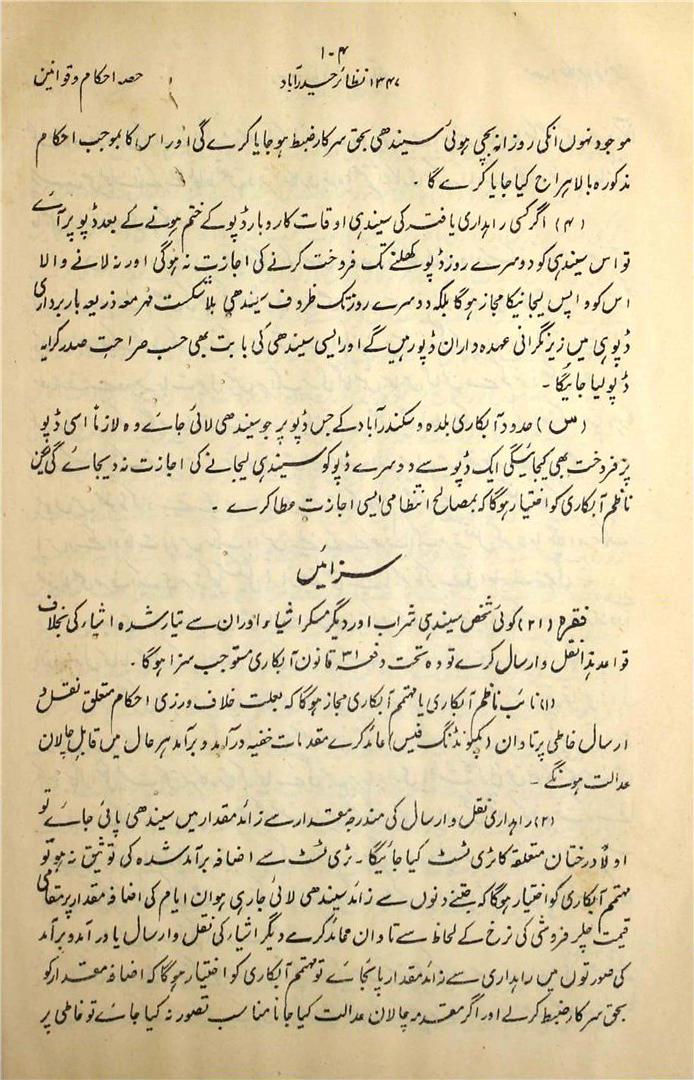 ۱۰۴
۱۳۴۷ نظائر حیدرآباد
حصہ احکام و قوانین
موجود نہوں انکی روزانہ بچی ہوئی سیندھی بحق سرکار ضبط ہو جایا کرے گی اور اس کا بموجب احکام
مذکورہ بالا ہراج کیا جایا کرے گا ۔
(۴) اگر کسی راہداری یافتہ کی سیندہی اوقات کاروبار ڈپو کے ختم ہونے کے بعد ڈپو پر آے
تو اس سیندہی کو دوسرے روز ڈپو کھلنے تک فروخت کرنے کی اجازت نہ ہوگی اور نہ لانے والا
اس کو واپس لیجانیکا مجاز ہوگا بلکہ دوسرے روز تک ظروف سیندھی بلا شکست مہر معہ ذریعہ باربرداری
ڈپو ہی میں زیر نگرانی عہدہ داران ڈپو رہیں گے اور ایسی سیندھی کی بابت بھی حسب صراحت صدر کرایہ
ڈپو لیا جائیگا ۔
(س) حدود آبکاری بلدہ و سکندرآباد کے جس ڈپو پر جو سیندھی لائی جاے وہ لازماً اسی ڈپو
پر فروخت بھی کیجائیگی ایک ڈپو سے دوسرے ڈپو کو سیندہی لیجانے کی اجازت نہ دیجاے گی لیکن
ناظم آبکاری کو اختیار ہوگا کہ بمصالح انتظامی ایسی اجازت عطا کرے ۔
سزائیں
فقرہ (۲۱) کوئی شخص سیندہی شراب اور دیگر مسکر اشیاء اور ان سے تیار شدہ اشیاء کی بخلاف
قواعد ہذا نقل و ارسال کرے تو وہ تحت دفعہ ۳۱ قانون آبکاری مستوجب سزا ہوگا ۔
(۱) نائب ناظم آبکاری یا مہتمم آبکاری مجاز ہوگا کہ بعلت خلاف ورزی احکام متعلق نقل و
ارسال خاطی پر تاوان (کمپونڈنگ فیس) عائد کرے مقدمات خفیہ درآمد و برآمد ہر حال میں قابل چالان
عدالت ہونگے ۔
(۲) راہداری نقل و ارسال کی مندرجہ مقدار سے زائد مقدار میں سیندھی پائی جاے تو
اولاً درختان متعلقہ کا ٹری ٹسٹ کیا جائیگا ۔ ٹری ٹسٹ سے اضافہ برآمد شدہ کی توثیق نہ ہو تو
مہتمم آبکاری کو اختیار ہوگا کہ جتنے دنوں سے زائد سیندھی لائی جارہی ہو ان ایام کی اضافہ مقدار پر مقامی
قیمت چلر فروشی کی نرخ کے لحاظ سے تاوان عائد کرے دیگر اشیاء کی نقل و ارسال یا درآمد و برآمد
کی صورتوں میں راہداری سے زائد مقدار پائیجاے تو مہتمم آبکاری کو اختیار ہوگا کہ اضافہ مقدار کو
بحق سرکار ضبط کرلے اور اگر مقدمہ چالان عدالت کیا جانا مناسب تصور نہ کیا جاے تو خاطی پر